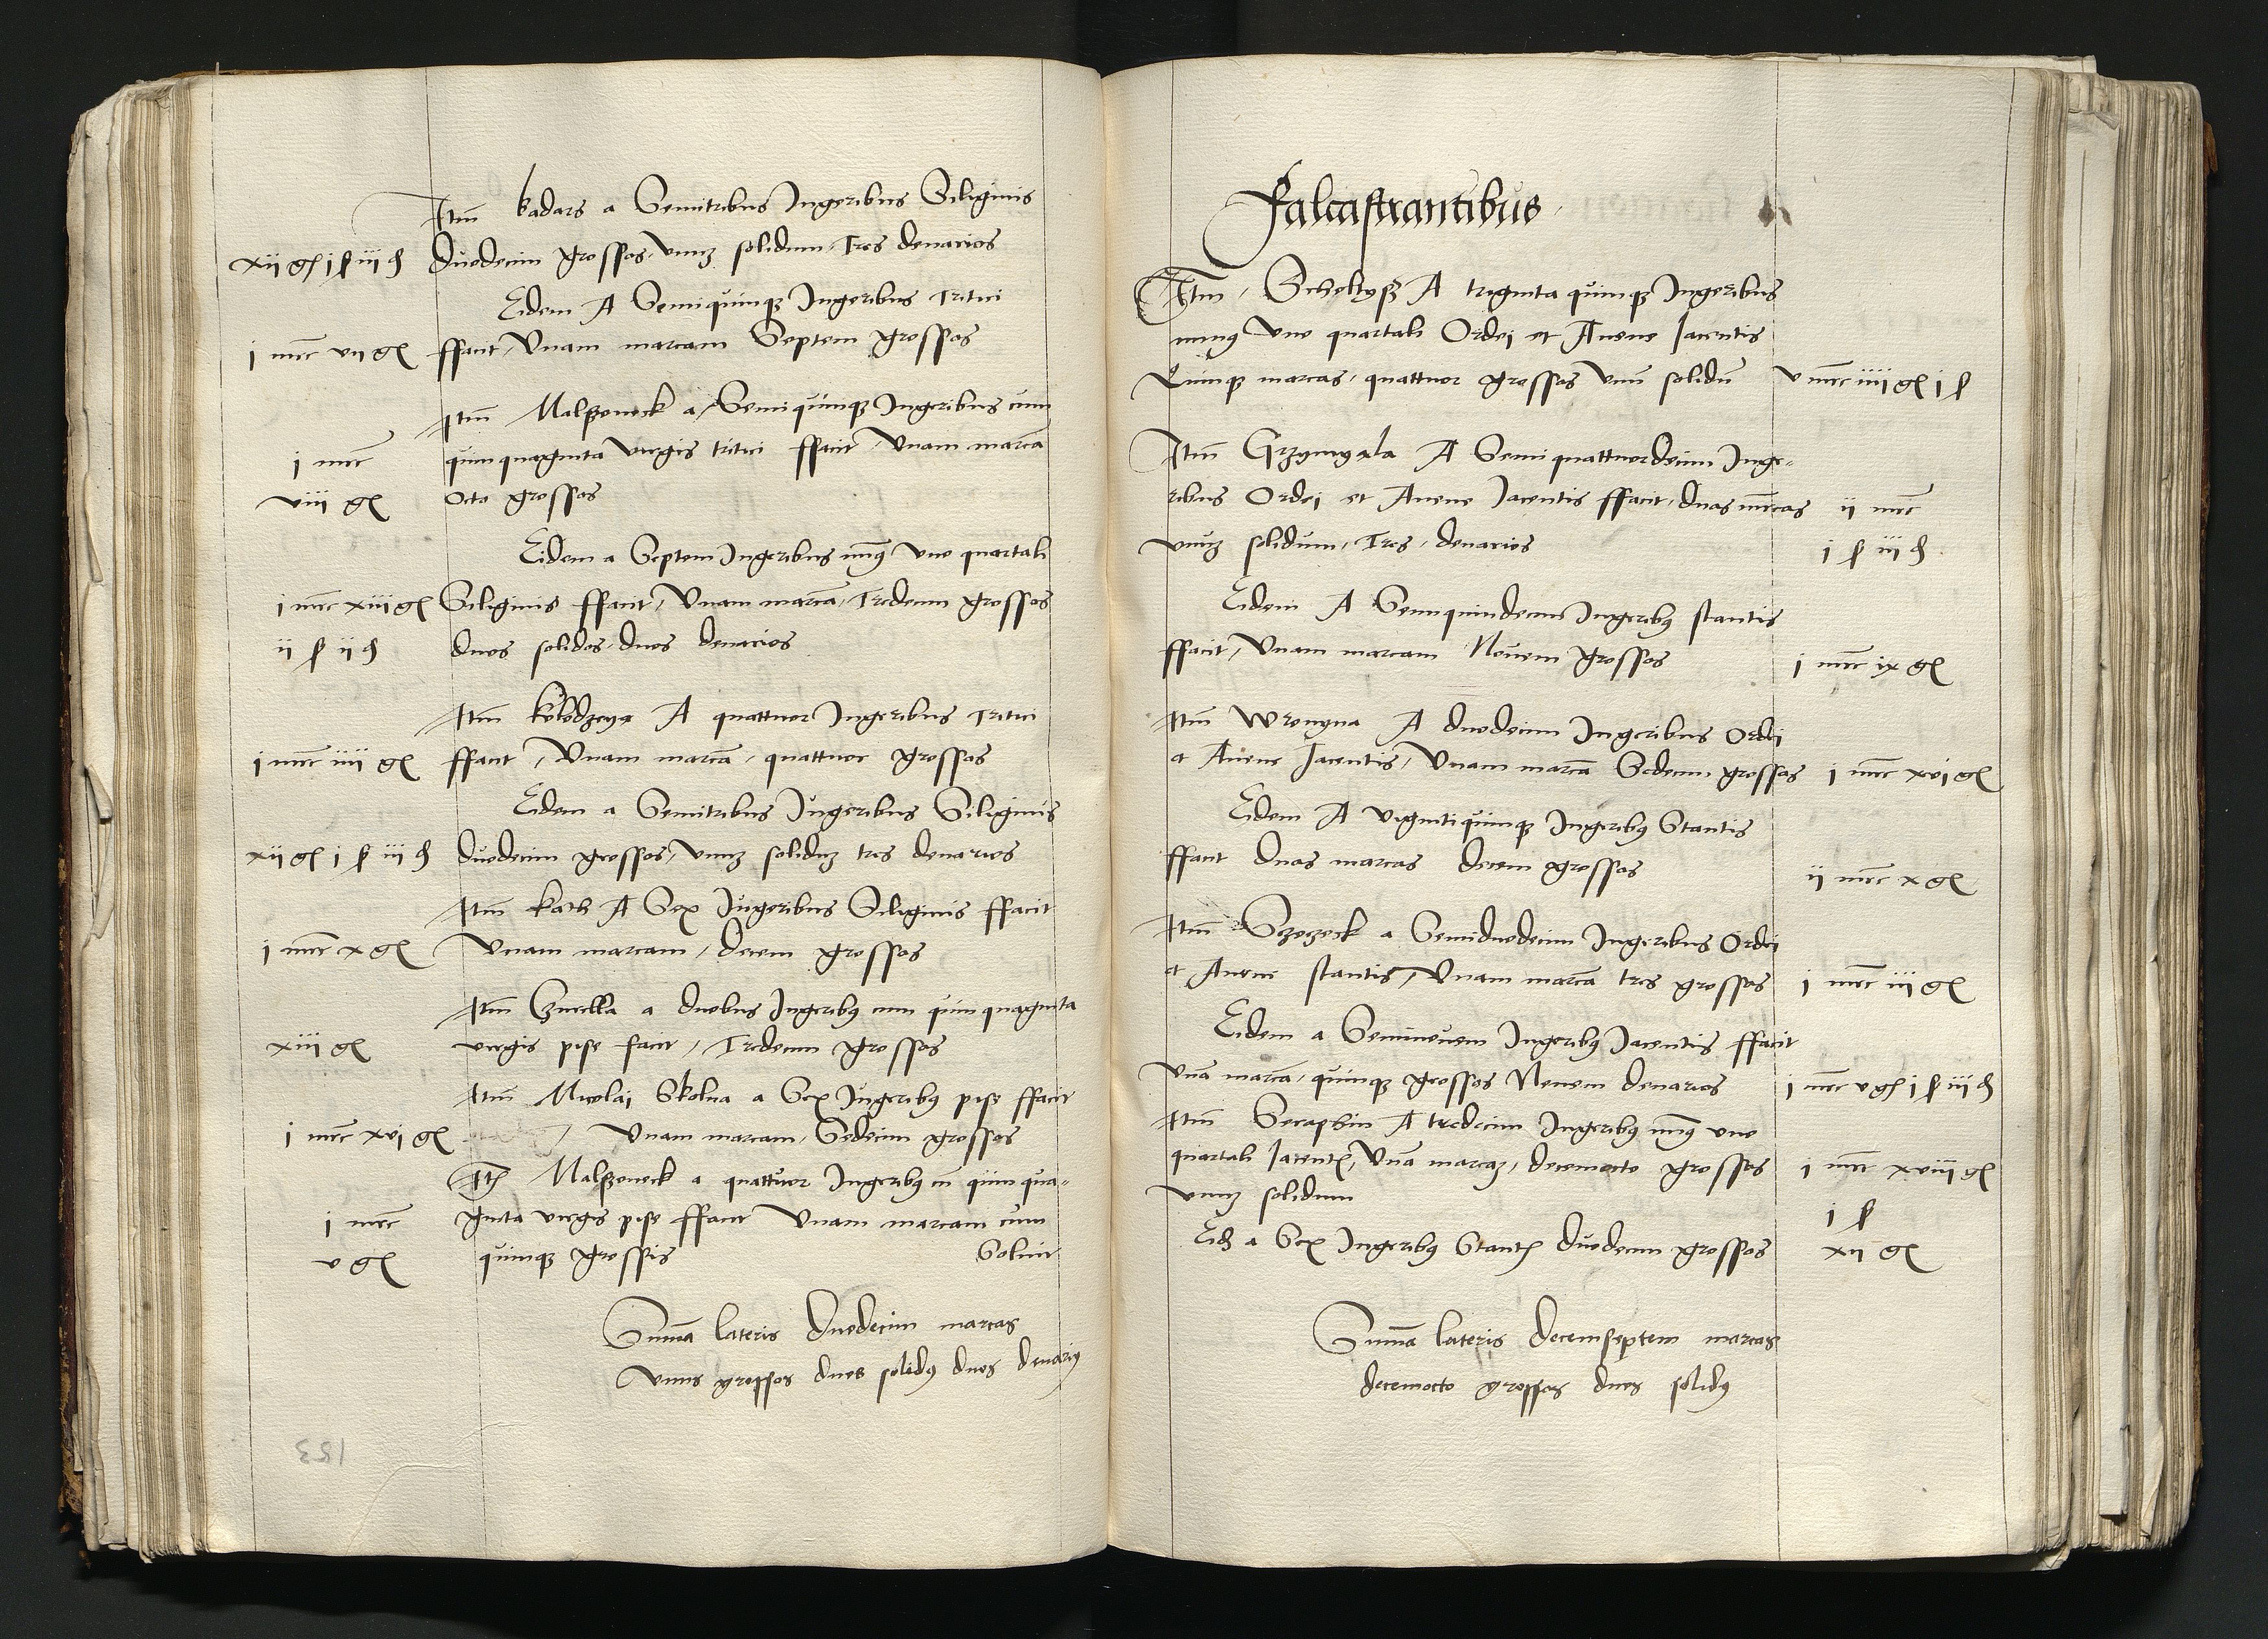 Itm̄ kadars a Semitribus Iugeribus Siliginis
xii gſ i ſ iii ₰ duodecim grossos, vnuȝ solidum, Tres denarios
Eidem A Semiquinqȝ Iugeribus Tritici
i mrc vii gſ ffacit, Vnam marcam Septem grossos
Itm̄ Malssoneck a Semiquinqȝ Iugeribus cum
i mrc quinquaginta virgis tritici ffacit, Vnam marcā
viii gſ Octo grossos
Eidem a Septem Iugeribus minꝰ vno quartali
i mrc xiii gſ Siliginis ffacit, Vnam marcā, Tredecim grossos
ii ſ ii ₰ duos solidos, duos denarios
Itm̄ A quattuor Iugeribus Tritici
i mrc iiii gſ ffacit, Vnam marcā, quattuor grossos
Eidem a Semitribus Iugeribus Siliginis
xii gſ i ſ iii ₰ duodecim grossos, vnuȝ soliduȝ tres denarios
Itm̄ kath A Sex Iugeribus Siliginis ffacit
i mrc x gſ Vnam marcam, decem grossos
Itm̄ a duobus Iugeribꝰ cum quinquaginta
xiii gſ virgis pise facit, Tredecim grossos
Itm̄ Nicolai Skolna a Sex Iugeribꝰ pise ffacit
i mrc xvi gſ Vnam marcam, Sedecim grossos
Itꝫ Malssoneck a quattuor Iugeribꝰ cū quinqua-
i mrc ginta virgis pise ffacit Vnam marcam cum
v gſ quinqȝ grossis Soluit
Sum̄a lateris duodecim marcas
Vnus grossos duos solidꝰ duos denariꝰ
183
Falcastrantibus
Itm̄, Scholtyss A triginta quinqȝ Iugeribus
minꝰ vno quartali Ordei et Auene Iacentis
Quinqȝ marcas, quattuor grossos vnū solidū v mrc iiii gſ i ſ
Itm̄ Grzymyala A Semiquattuordecim Iuge-
ribus Ordei et Auene Iacentis ffacit, duas mrcas ii mrc
vnuȝ solidum, Tres, denarios i ſ iii ₰
Eidem A Semiquindecim Iugeribꝰ stantis
ffacit, Vnam marcam Nouem grossos i mrc ix gſ
Itm̄ Wronyna A duodecim Iugeribus Ordei
et Auene Iacentis, Vnam marcā Sedecim grossos i mrc xvi gſ
Eidem A vigintiquinqȝ Iugeribꝰ Stantis
ffacit duas marcas decem grossos ii mrc x gſ
Itm̄ Szczeszek a Semiduodecim Iugeribus Ordei
et Auene stantis, Vnam marcā tres grossos i mrc iii gſ
Eidem a Seminouem Iugeribꝰ Iacentis ffacit
Vnā marcā, quinqȝ grossos Nouem denarios i mrc v gſ i ſ iii ₰
Itm̄ Seraphin A tredecim Iugeribꝰ minꝰ vno
quartali Iacentꝭ, Vnā marcaȝ, decemocto grossos i mrc xviii gſ
vnuȝ solidum i ſ
Eidȝ a Sex Iugeribꝰ Stantꝭ duodecim grossos xii gſ
Sum̄a lateris decemseptem marcas
decemocto grossos duos solidꝰ